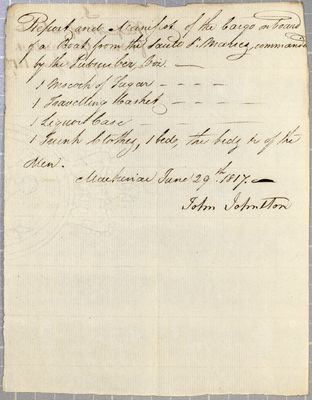 Report and Manifest of the Cargo on Board
of a Boat from the Sault St. Maries, commanded
by the Subscriber, Viz. —
1 Mocock of Sugar — — — —
1 Travelling Basket — — — —
1 Liquor Case — — — —
1 Trunk Clothes, 1 bed, the beds &c of the
Men.
Mackinac June 29th 1817. —
John Johnston